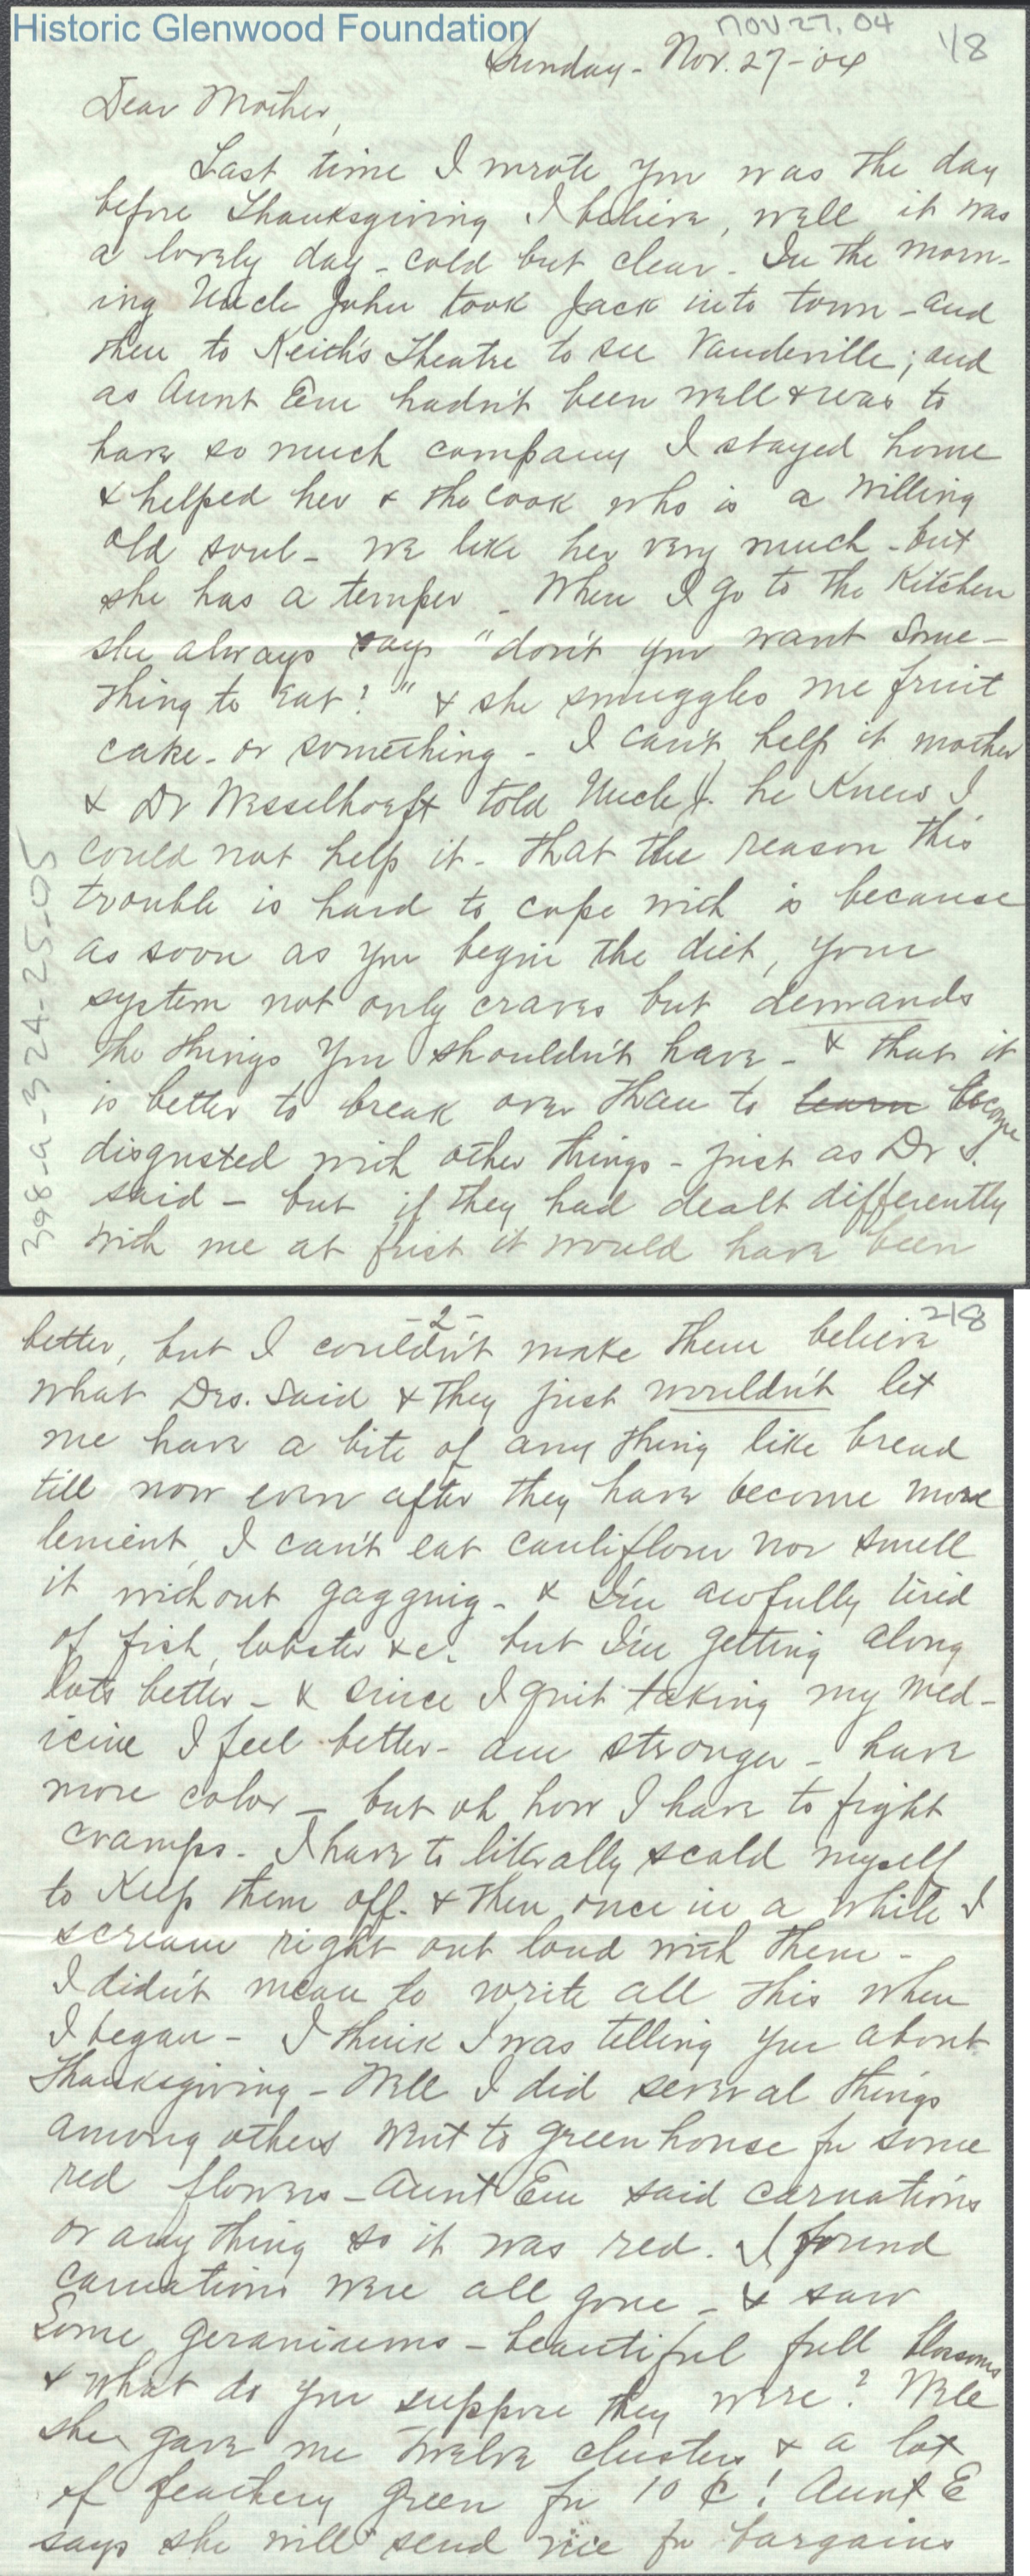 Historic Glenwood Foundation
NOV 27, 04
1/8
Sunday - Nov. 27 - 04
Dear Mother,
Last time I wrote you was the day
before Thanksgiving I believe, well it was
a lovely day - cold but clear - In the morn-
ing Uncle John took Jack into town - and
then to Keith's Theatre to see Vaudeville; and
as Aunt Em hadn't been well & was to
have so much company I stayed home
& helped her & the cook who is a willing
old soul - we like her very much - but
she has a temper - When I go to the Kitchen
she always says "don't you want some-
thing to eat?" & she smuggles me fruit
cake - or something - I can't help it mother
& Dr Wesselhoeft told Uncle J. he Knew I
could not help it - that the reason this
trouble is hard to cope with is because
as soon as you begin the diet, your
system not only craves but demands
the things you shouldn't have - & that it
is better to break over than to learn become
disgusted with other things - just as Dr S.
said - but if they had dealt differently
with me at first it would have been
398-a-324-25-05
-2-
2/8
better, but I couldn't make them believe
what Drs. said & they just wouldn't let
me have a bite of any thing like bread
till now even after they have become more
lenient, I can't eat cauliflower nor smell
it without gagging - & I'm awfully tired
of fish, lobster &c. but I'm getting along
lots better - & since I quit taking my med-
icine I feel better - am stronger - have
more color - but oh how I have to fight
cramps. I have to literally scald myself
to Keep them off. & then once in a while I
scream right out loud with them -
I didn't mean to write all this when
I began - I think I was telling you about
Thanksgiving - Well I did several things
among others went to green house for some
red flowers - Aunt Em said carnations
or any thing so it was red. I found
carnations were all gone - & saw
some geraniums - beautiful full blossoms
& what do you suppose they were? Well
she gave me twelve clusters & a lot
of feathery green for 10 ¢! Aunt E
says she will send me for bargains